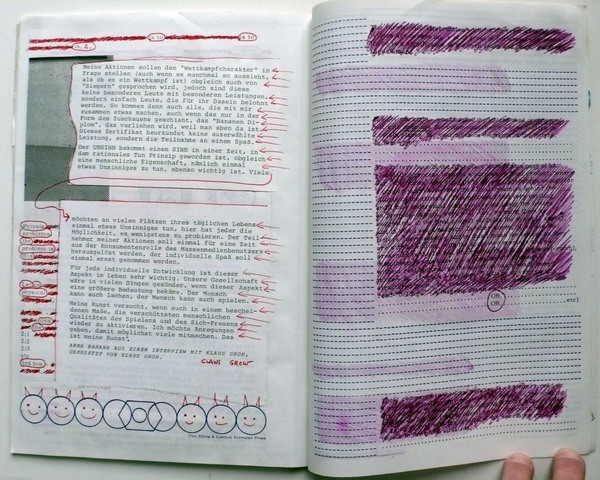 is to
is to
Meine Aktionen sollen den "Wettkampfcharakter" in
Frage stellen (auch wenn es manchmal so aussieht,
als ob es ein Wettkampf ist) obgleich auch von
"Siegern" gesprochen wird, jedoch sind diese
keine besonderen Leute mit besonderen Leistungen,
sondern einfach Leute, die für ihr Dasein belohnt
werden. So kommen denn auch alle, die mit mir
zusammen etwas machen, auch wenn das nur in der
Form des Zuschauens geschieht, das "Bananen Di-
plom", das verliehen wird, weil man eben da ist.
Dieses Zertifikat beurkundet keine auserwählte
Leistung, sondern die Teilnahme an einem Spaß.
Der UNSINN bekommt einen SINN in einer Zeit, in
dem rationales Tun Prinzip geworden ist, obgleich
eine menschliche Eigenschaft, nämlich einmal
etwas Unsinniges zu tun, ebenso wichtig ist. Viele
möchten an vielen Plätzen ihres täglichen Lebens
einmal etwas Unsinniges tun, hier hat jeder die
Möglichkeit, es wenigstens zu probieren. Der Teil-
nehmer meiner Aktionen soll einmal für eine Zeit
aus der Konsumentenrolle des Massenmedienbenutzers
herausgelöst werden, der individuelle Spaß soll
einmal ernst genommen werden.
Für jede individuelle Entwicklung ist dieser
Aspekt im Leben sehr wichtig. Unsere Gesellschaft
wäre in vielen Dingen gesünder, wenn dieser Aspekt
eine größere Bedeutung bekäme. Der Mensch
kann auch lachen, der Mensch kann auch spielen.
Meine Kunst versucht, wenn auch in einem beschei-
denen Maße, die verschütteten menschlichen
Qualitäten des Spielens und des Sich-Freuens
wieder zu aktivieren. Ich möchte Anregungen
geben, damit möglichst viele mitmachen. Das
ist meine Kunst".
ANNA BANANA AUS EINEM INTERVIEW MIT KLAUS GROH,
ÜBERSETZT VON KLAUS GROH.
CLAWS GROW
OR,
OR,
etc)